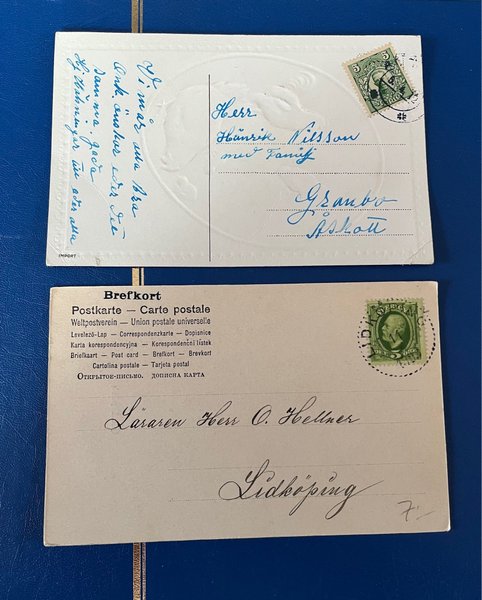 Vi mår alla bra
Och önskar eder det
samma. goda
Hj Helsningar till eder alla
IMPORT
5
Herr
Hänrik Nilsson
med Familj
Granbo
Åskott
Brefkort
Postkarte — Carte postale
Weltpostverein — Union postale universelle
Levelező-Lap — Correspondenzkarte — Dopisnice
Karta korespondencyjna — Korespondenční lístek
Briefkaart — Post card — Brefkort — Brevkort
Cartolina postale — Tarjeta postal
Открытое-письмо. дописна карта
5
Läraren Herr O. Hellner
Lidköping
7:-